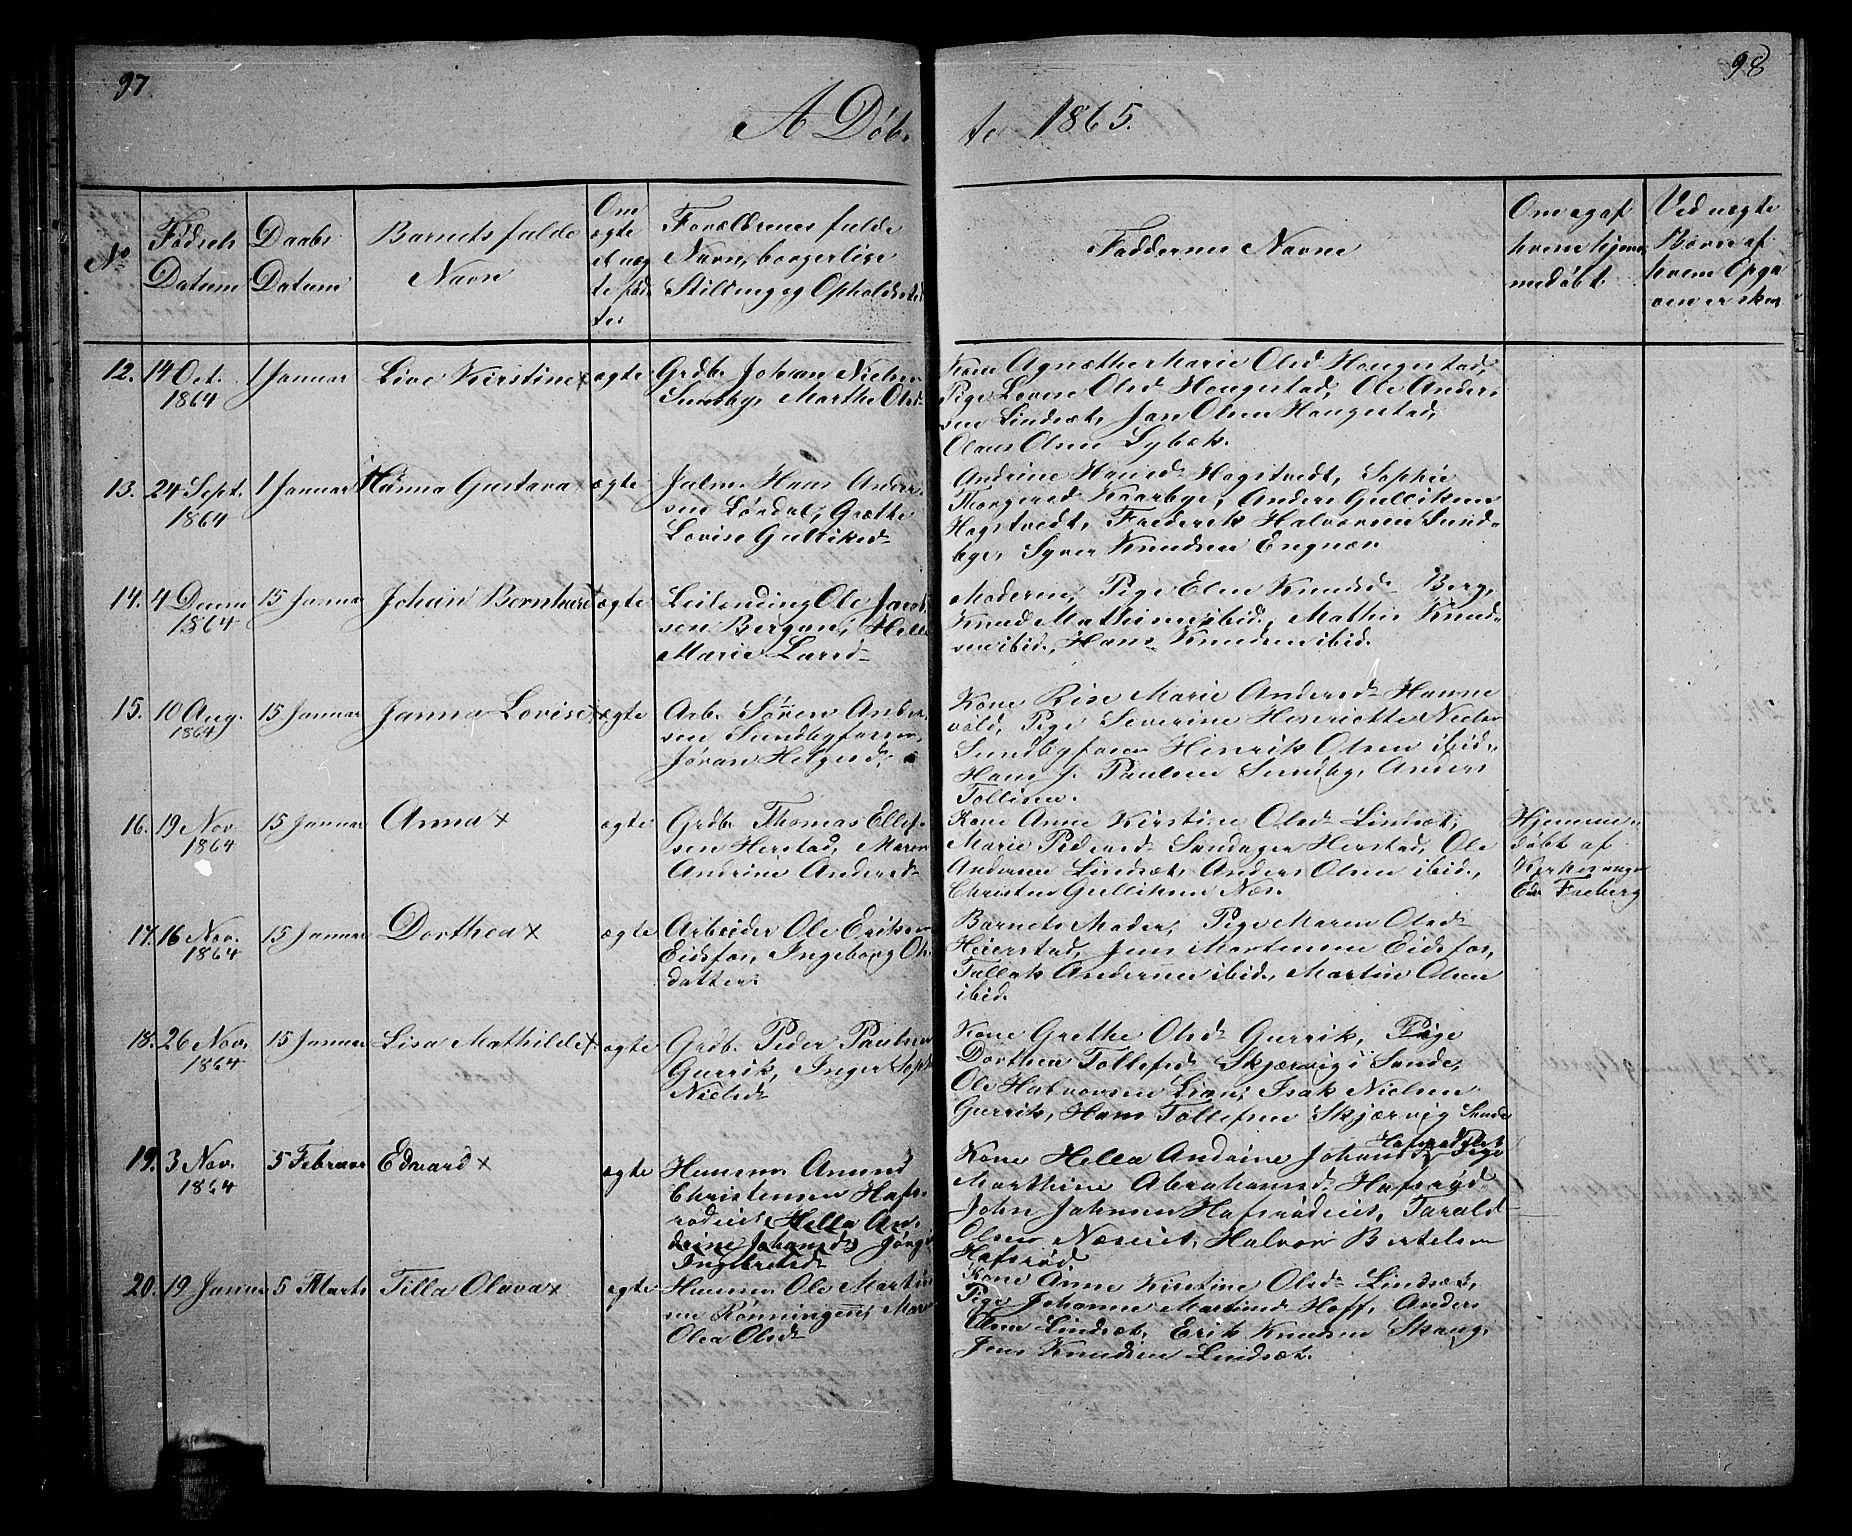 97
98
A Døb,
te 1865.
No
Fødsels
Datum
Daabs
Datum
Barnets fulde
Navn
Om
ægte
el. uæg
te fød
te.
Forældrenes fulde
Navn, borgerlige
Stilling og Opholdssted
Faddernes Navne
Om og af
hvem hjem
medøbt.
Ved uægte
Børn af
hvem Opga
ven er sker
12. 14 Oct. 1864
1 Januar
Live Kirstine x
ægte
Grdb. Johan Nielsen
Sundby, Marthe Olsd
Kone Agnethe Marie Olsd Haugestad,
Pige Lovise Olsd Haugestad, Ole Ander,
sen Lindsæt, Jan Olsen Haugestad,
Olaus Olsen Lybek.
13. 24 Sept. 1864
1 Januar
Hanna Gustava x
ægte
Hans Ander
sen Lørdal, Grethe
Lovise Gulliksd
Andrine Hansd Hagstvedt, Sophie
Thorgersd Kaarbye, Anders Gulliksen
Hagstvedt, Frederik Halvorsen Sund,
bye, Syver Knudsen Engnæs
14. 4 Decm 1864
15 Januar
Johan Bernhard
ægte
Leilending Ole Jacob
sen Bergan, Helle
Marie Larsd
Moderen, Pige Elen Knudsd Berg,
Knud Mathisen ibid, Mathis Knud,
sen ibid., Hans Knudsen ibid.
15. 10 Aug. 1864
15 Januar
Janna Lovise x
ægte
Arb. Søren Anders
sen Sundbyfossen,
Jøran Helgesd,
Kone Rise Marie Andersd Hanne
vold, Pige Severine Henriette Niels
Sundbyfossen Henrik Olsen ibid,
Hans J. Paulsen Sundby, Anders
Tollisen.
16. 19 Nov. 1864
15 Januar
Anna x
ægte
Grdb. Thomas Ellef
sen Herstad, Maren
Andrine Andersd
Kone Anne Kirstine Olsd Lindsæt,
Marie Pedersd Sandager Herstad, Ole
Andersen Lindsæt, Anders Olsen ibid.,
Christen Gulliksen Næs.
Hjemme,
døbt af
Kirkesanger
Edv. Freberg
17. 16 Nov. 1864
15 Januar
Dorthea x
ægte
Arbeider Ole Eriksen
Eidsfos, Ingeborg Ols
datter.
Barnets Moder, Pige Maren Olsd
Heierstad, Jens Mortensen Eidsfos,
Tollak Andersen ibid, Martin Olsen
ibid.
18. 26 Nov. 1864
15 Januar
Lisa Mathilde x
ægte
Grdb. Peder Paulsen
Gurrik, Inger Soph
Nielsd
Kone Grethe Olsd Gurrik, Pige
Dorthea Tollefsd Skjærvig i Sande,
Ole Halvorsen Lian, Isak Nielsen
Gurrik, Hans Tollefsen Skjærvig Sande
19. 3 Nov. 1864
5 Februar
Edvard x
ægte
Husm. Amund
Christensen Hafs,
rødeiet, Hella An,
drine Johansd, Jørg
Ingebretsd
Kone Hella Andrine Johansd Hafsrødeiet Pige
Marthine Abrahamsd Hafsrød
John Johnsen Hafsrødeiet, Tarald
Olsen Næseiet, Halvor Bertelsen
Hafsrød
20. 19 Januar
5 Marts
Tilla Olava x
ægte
Husm. Ole Martin
sen Rønningen, Mar
Olea Olsd
Kone Anne Kirstine Olsd Lindsæt,
Pige Johanne Martinsd Hoff, Anders
Olsen Lindsæt, Erik Knudsen Skaug,
Jens Knudsen Lindsæt.